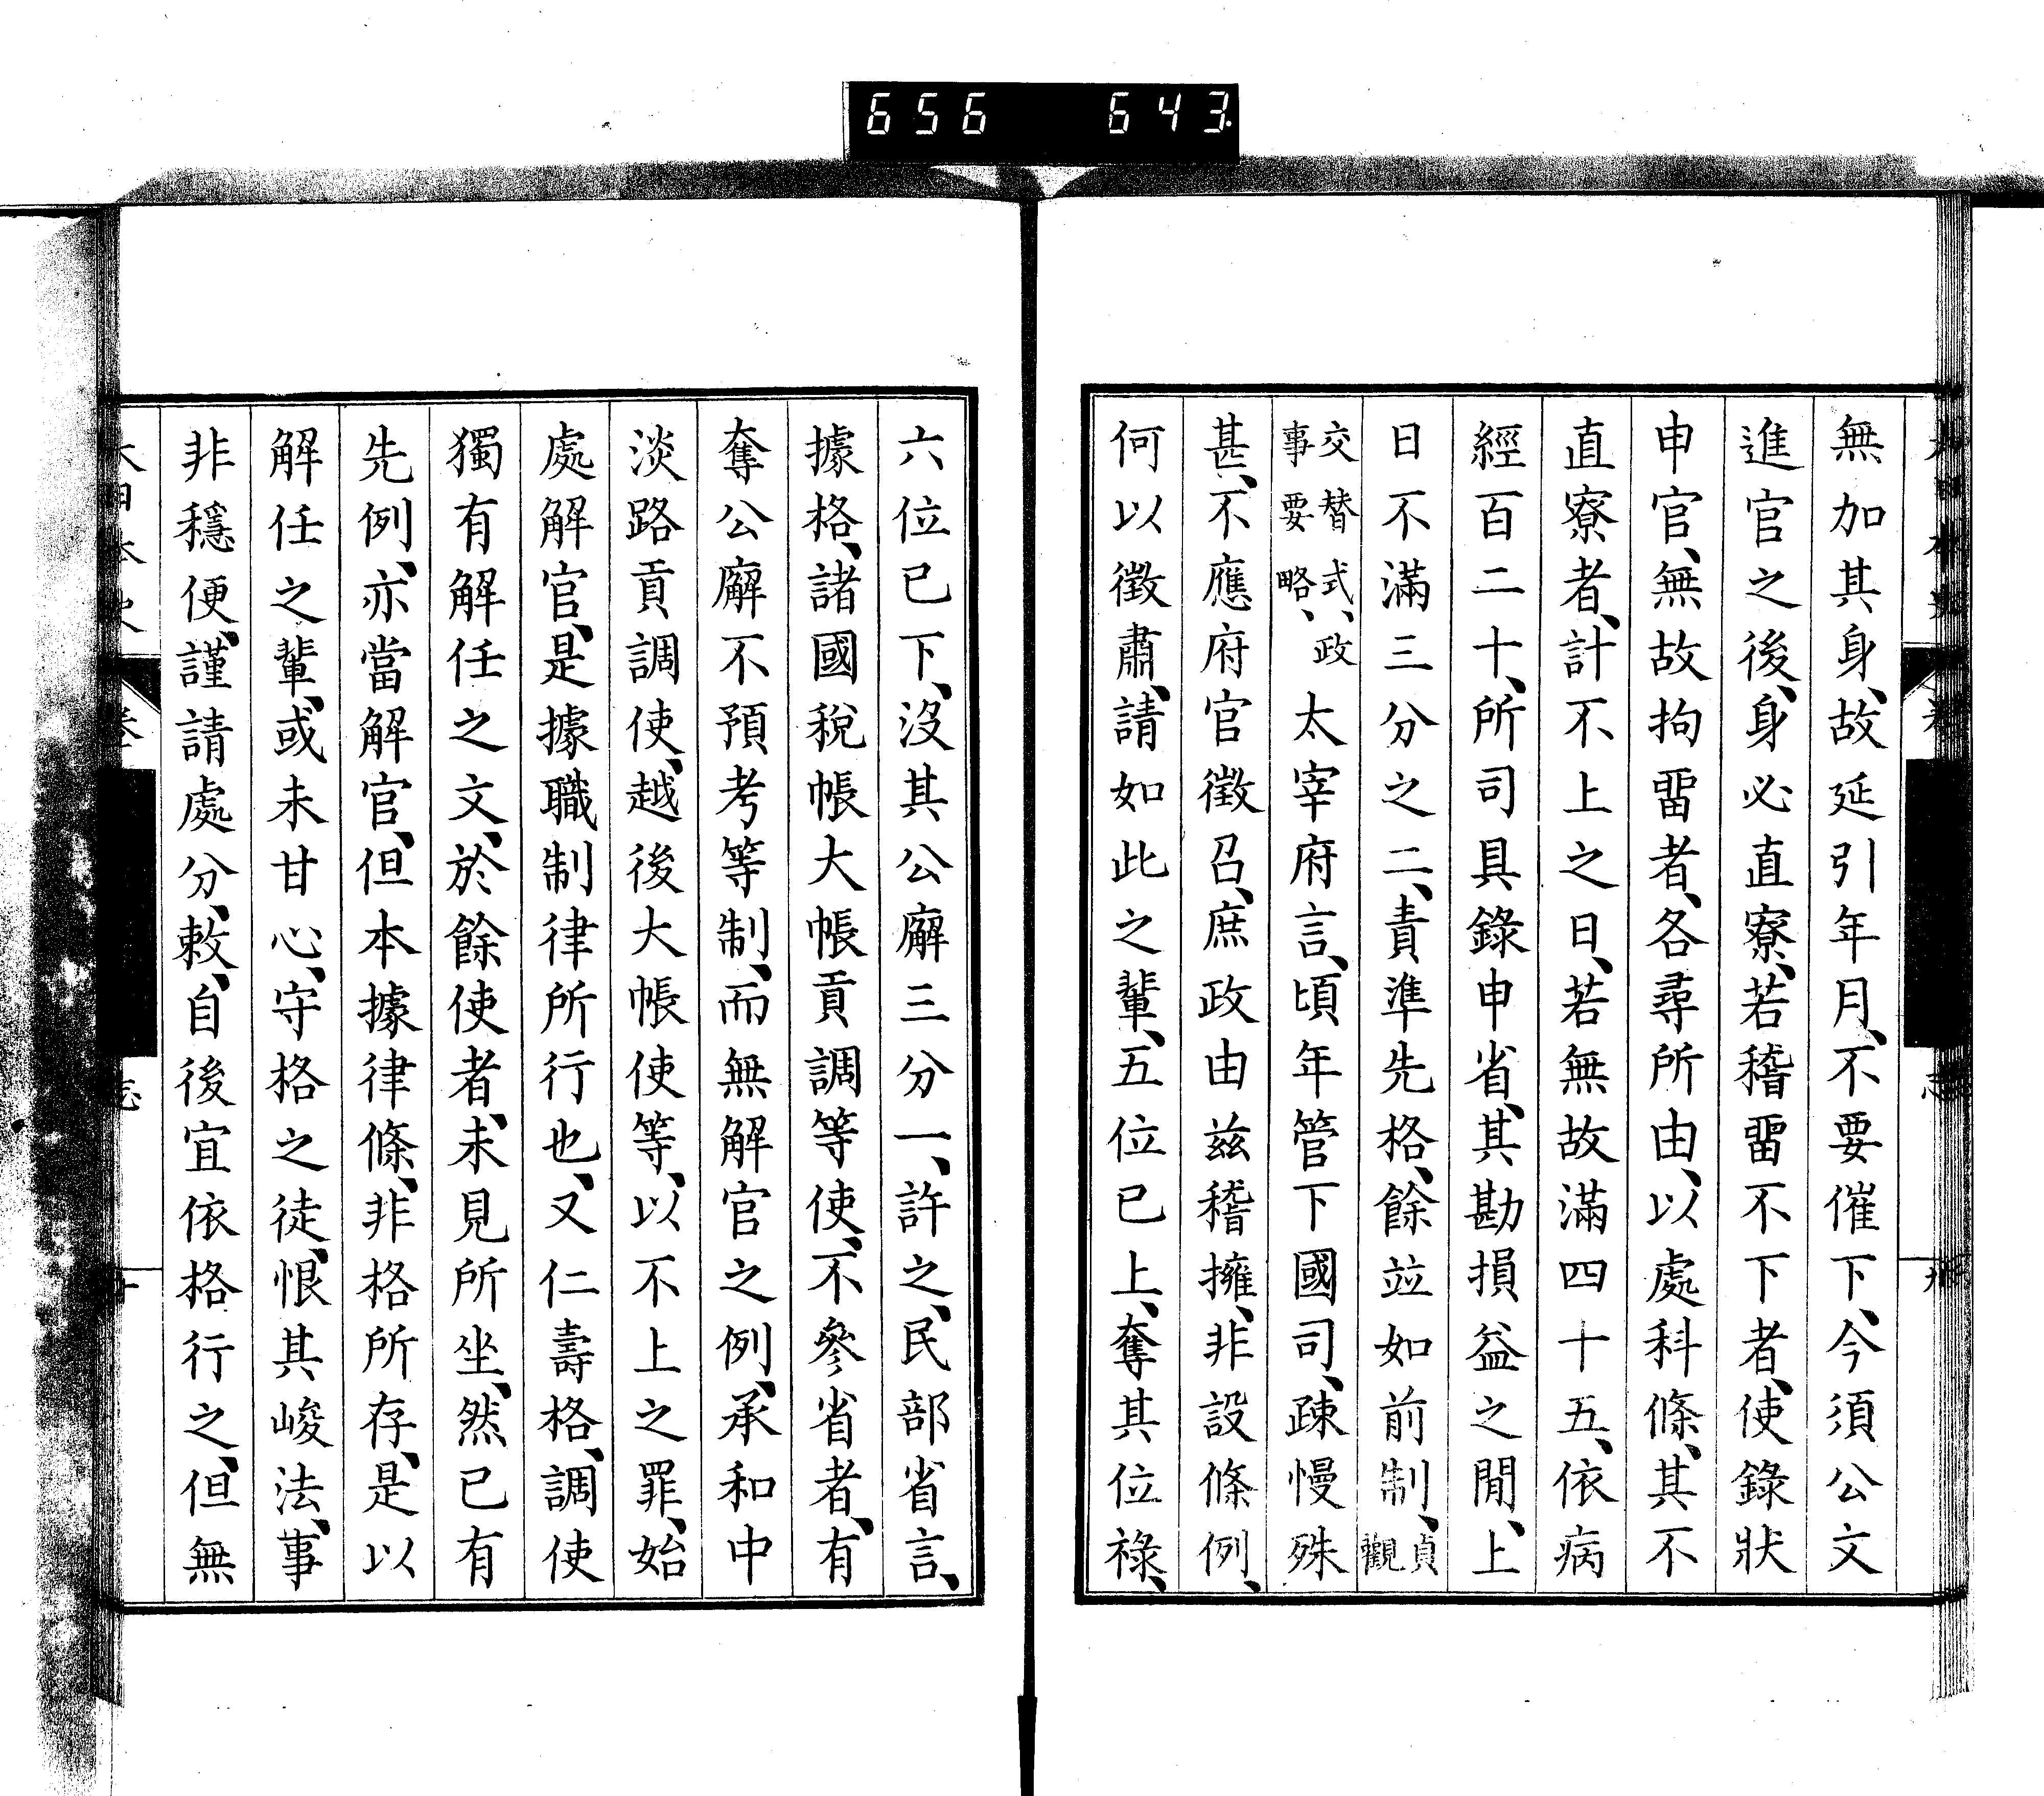 656 643
無加其身、故延引年月、不要催下、今須公文
進官之後、身必直寮、若稽畱不下者、使錄狀
申官、無故拘畱者、各尋所由、以處科條、其不
直寮者、計不上之日、若無故滿四十五、依病
經百二十、所司具錄申省、其勘損益之閒、上
日不滿三分之二、責準先格、餘竝如前制、貞觀
交替式、政事要略、太宰府言、頃年管下國司、疎慢殊
甚、不應府官徵召、庶政由茲稽擁、非設條例、
何以徵肅、請如此之輩、五位已上、奪其位祿、
六位已下、沒其公廨三分一、許之、民部省言、
據格、諸國稅帳大帳貢調等使、不參省者、有
奪公廨不預考等制、而無解官之例、承和中
淡路貢調使、越後大帳使等、以不上之罪、始
處解官、是據職制律所行也、又仁壽格、調使
獨有解任之文、於餘使者、未見所坐、然已有
先例、亦當解官、但本據律條、非格所存、是以
解任之輩、或未甘心、守格之徒、恨其峻法、事
非穩便、謹請處分、敕、自後宜依格行之、但無